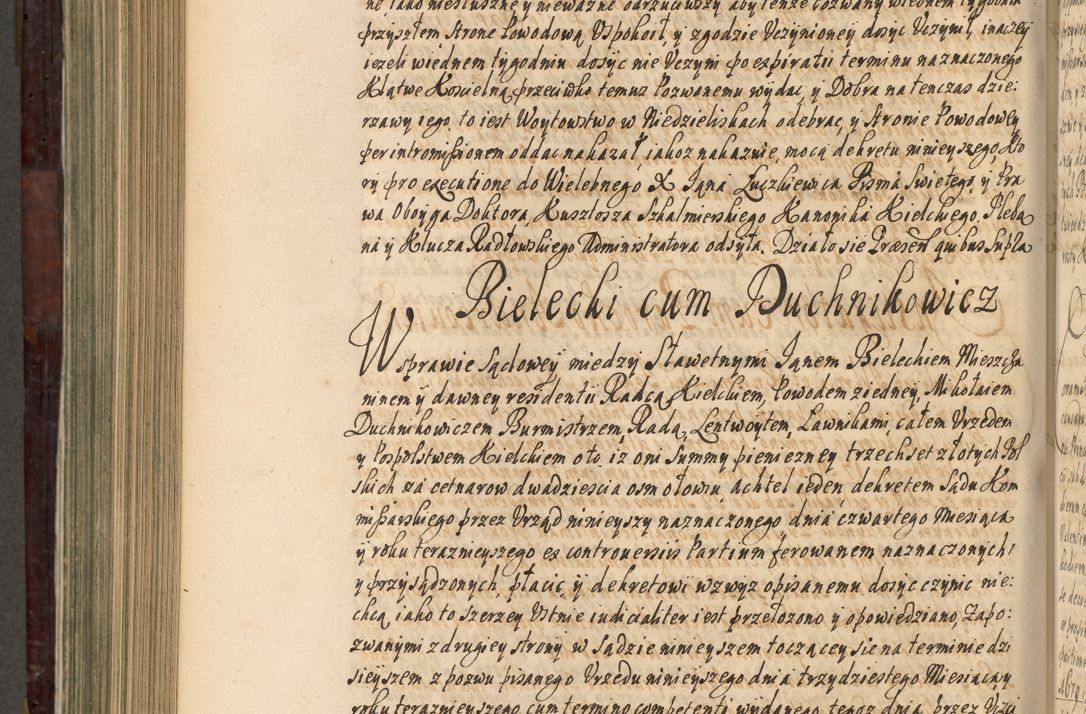 ne jako niesłuszne y nieważne odrzuciwszy aby tenże pozwany wiednem tygodniu
przyszłem Strone Powodową Uspokoił, y zgodzie Uczynioney dosyc Uczynił, inaczey
iezeli wiednem tygodniu dosyc nie Uczyni po expiratii terminu naznaczonego
Klątwe Koscielną przeciwko temuz Pozwanemu wydac, y Dobra natenczas dzie:
rzawy iego to iest Woytowstwo w Niedzieliskach odebrac, y stronie Powodowey
per intromissionem oddac nakazał, iakoz nakazuie, mocą dekretu ninieyszego, Kto
ry pro executione do Wielebnego X Jana Łuczkiewica Pisma Swietego, y Pra
wa Oboyga Doktora, Kusztosza Szkalmierskiego Kanonika Kielckiego, Pleba
na y Klucza Radłowskiego Administratora odsyła. Działo sie Præsent quibus Supra
Bielecki cum Duchnikowicz
W sprawie Sądowey miedzy Sławetnymi Janem Bieleckiem Mieszcza
ninem y dawney residentii Radcą Kielckiem, Powodem z iedney, Mikołaiem
Duchnikowiczem Burmistrzem, Radą, Lentwoytem, Ławnikami, całem Urzedem
y Pospolstwem Kielckiem o to iz oni Summy pienieżney trzechset złotych Pol
skich za cetnarow dwadziescia osm ołowiu, achtel ieden dekretem Sądu Kom
missarskiego przez Urząd ninieyszy naznaczonego dnia czwartego Miesiąca
y roku teraznieyszego ex controversiis Partium ferowanem naznaczonych
y przysądzonych, płacic, y dekretowi wzwyz opisanemu dosyc czynic nie:
chcą, iako to szerzey Ustnie iudicialiter iest przełozono y opowiedziano, Zapo:
zwanymi z drugiey strony w Sądzie ninieyszem toczącey sie na terminie dzi
sieyszem z pozwu pisanego Urzedu ninieyszego dnia trzydziestego Miesiąca y
roku teraznieyszego cum termino competenti wydanego tegoz dnia przez